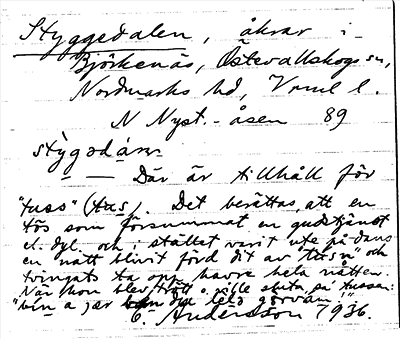 Styggedalen, åkrar i
Björkenäs, Östervallskogs sn,
Nordmarks hd, Vrml l.
N Nyst.-åsen 89
— — Där är tillhåll för
"tuss" (tus). Det berättas, att en
tös som försummat en gudstjänst
el. dyl. och i stället varit ute på dans
en natt blivit förd dit av "tusn" och
tvingats ta opp havre hela natten.
När hon blev trött o. ville sluta, sa tussen:
E. Andersson 1936.